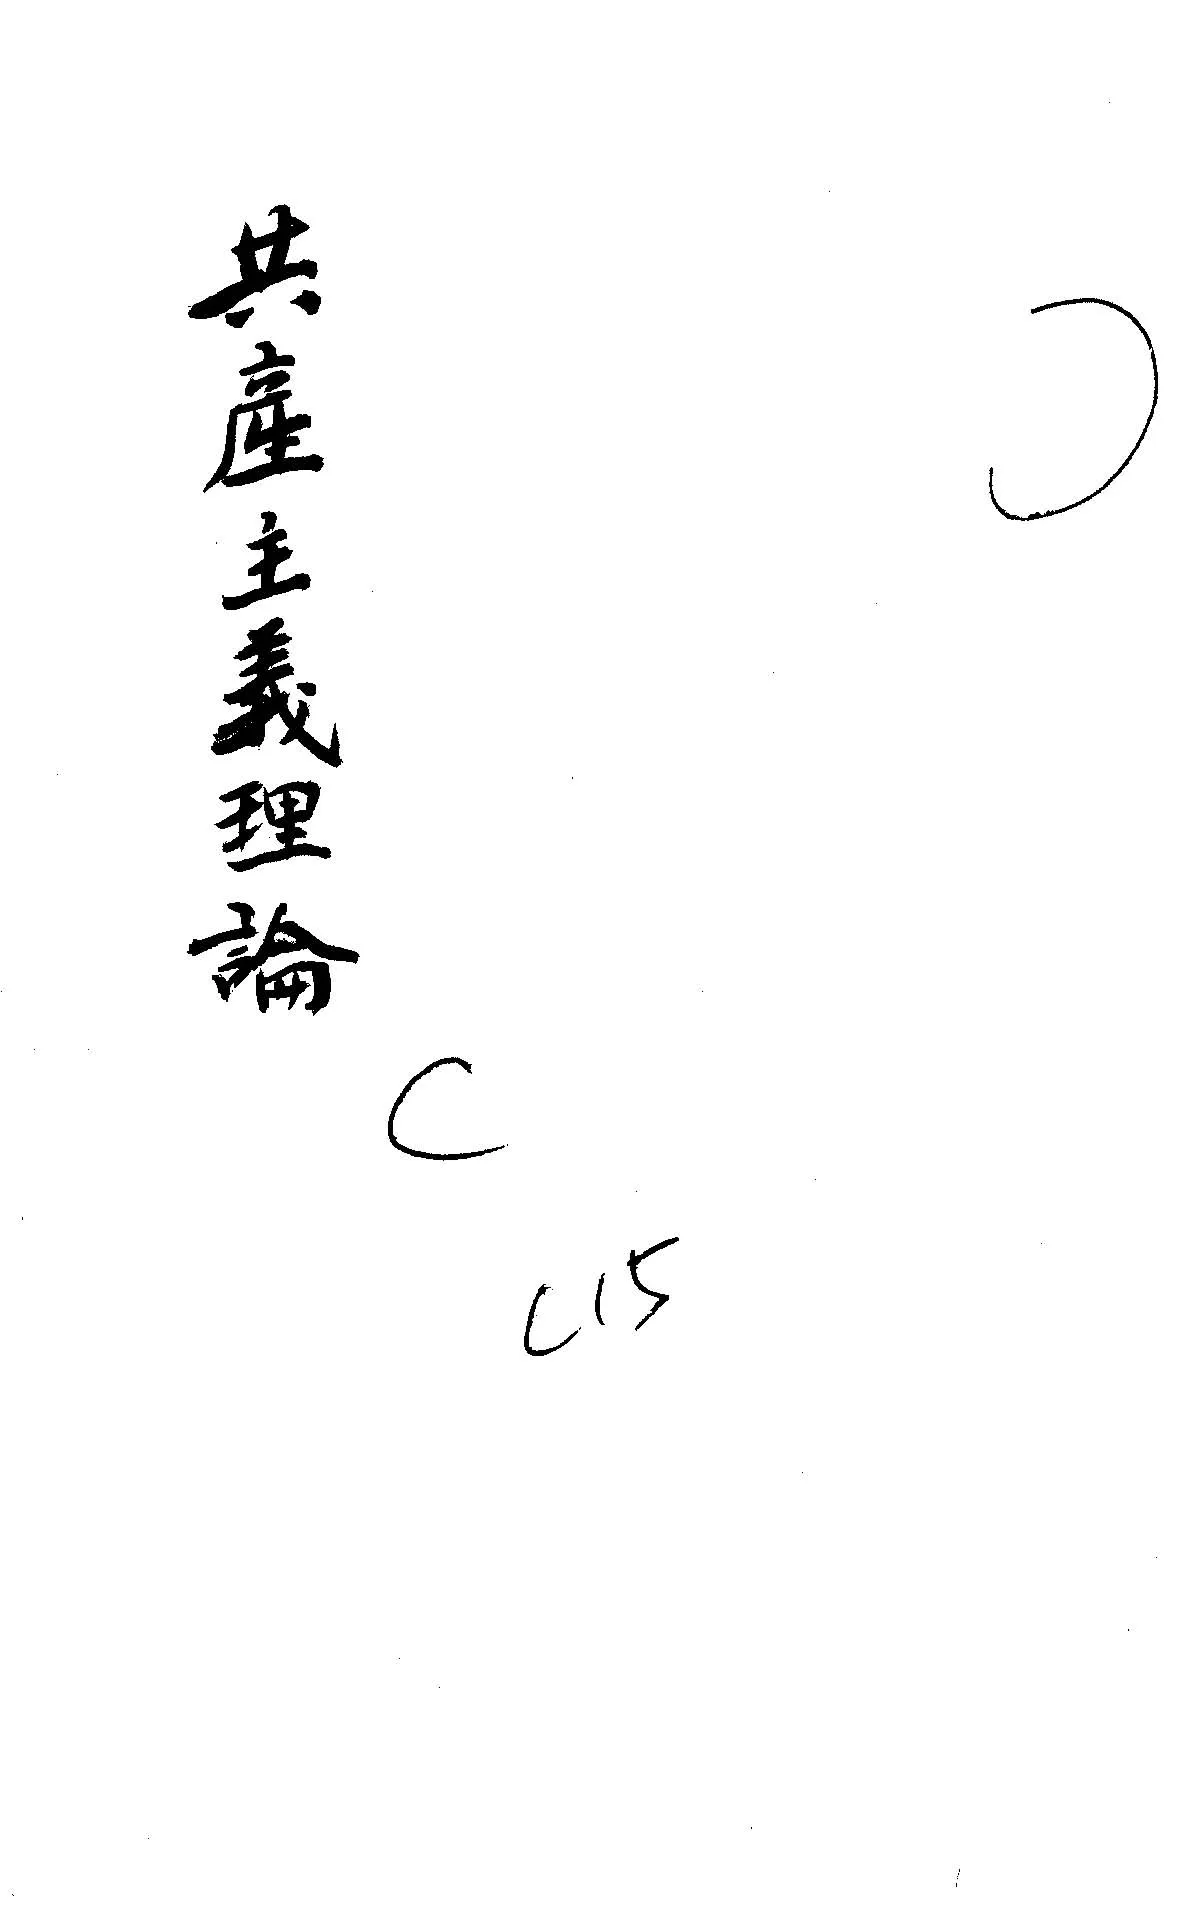 共產主義理論
C
C15